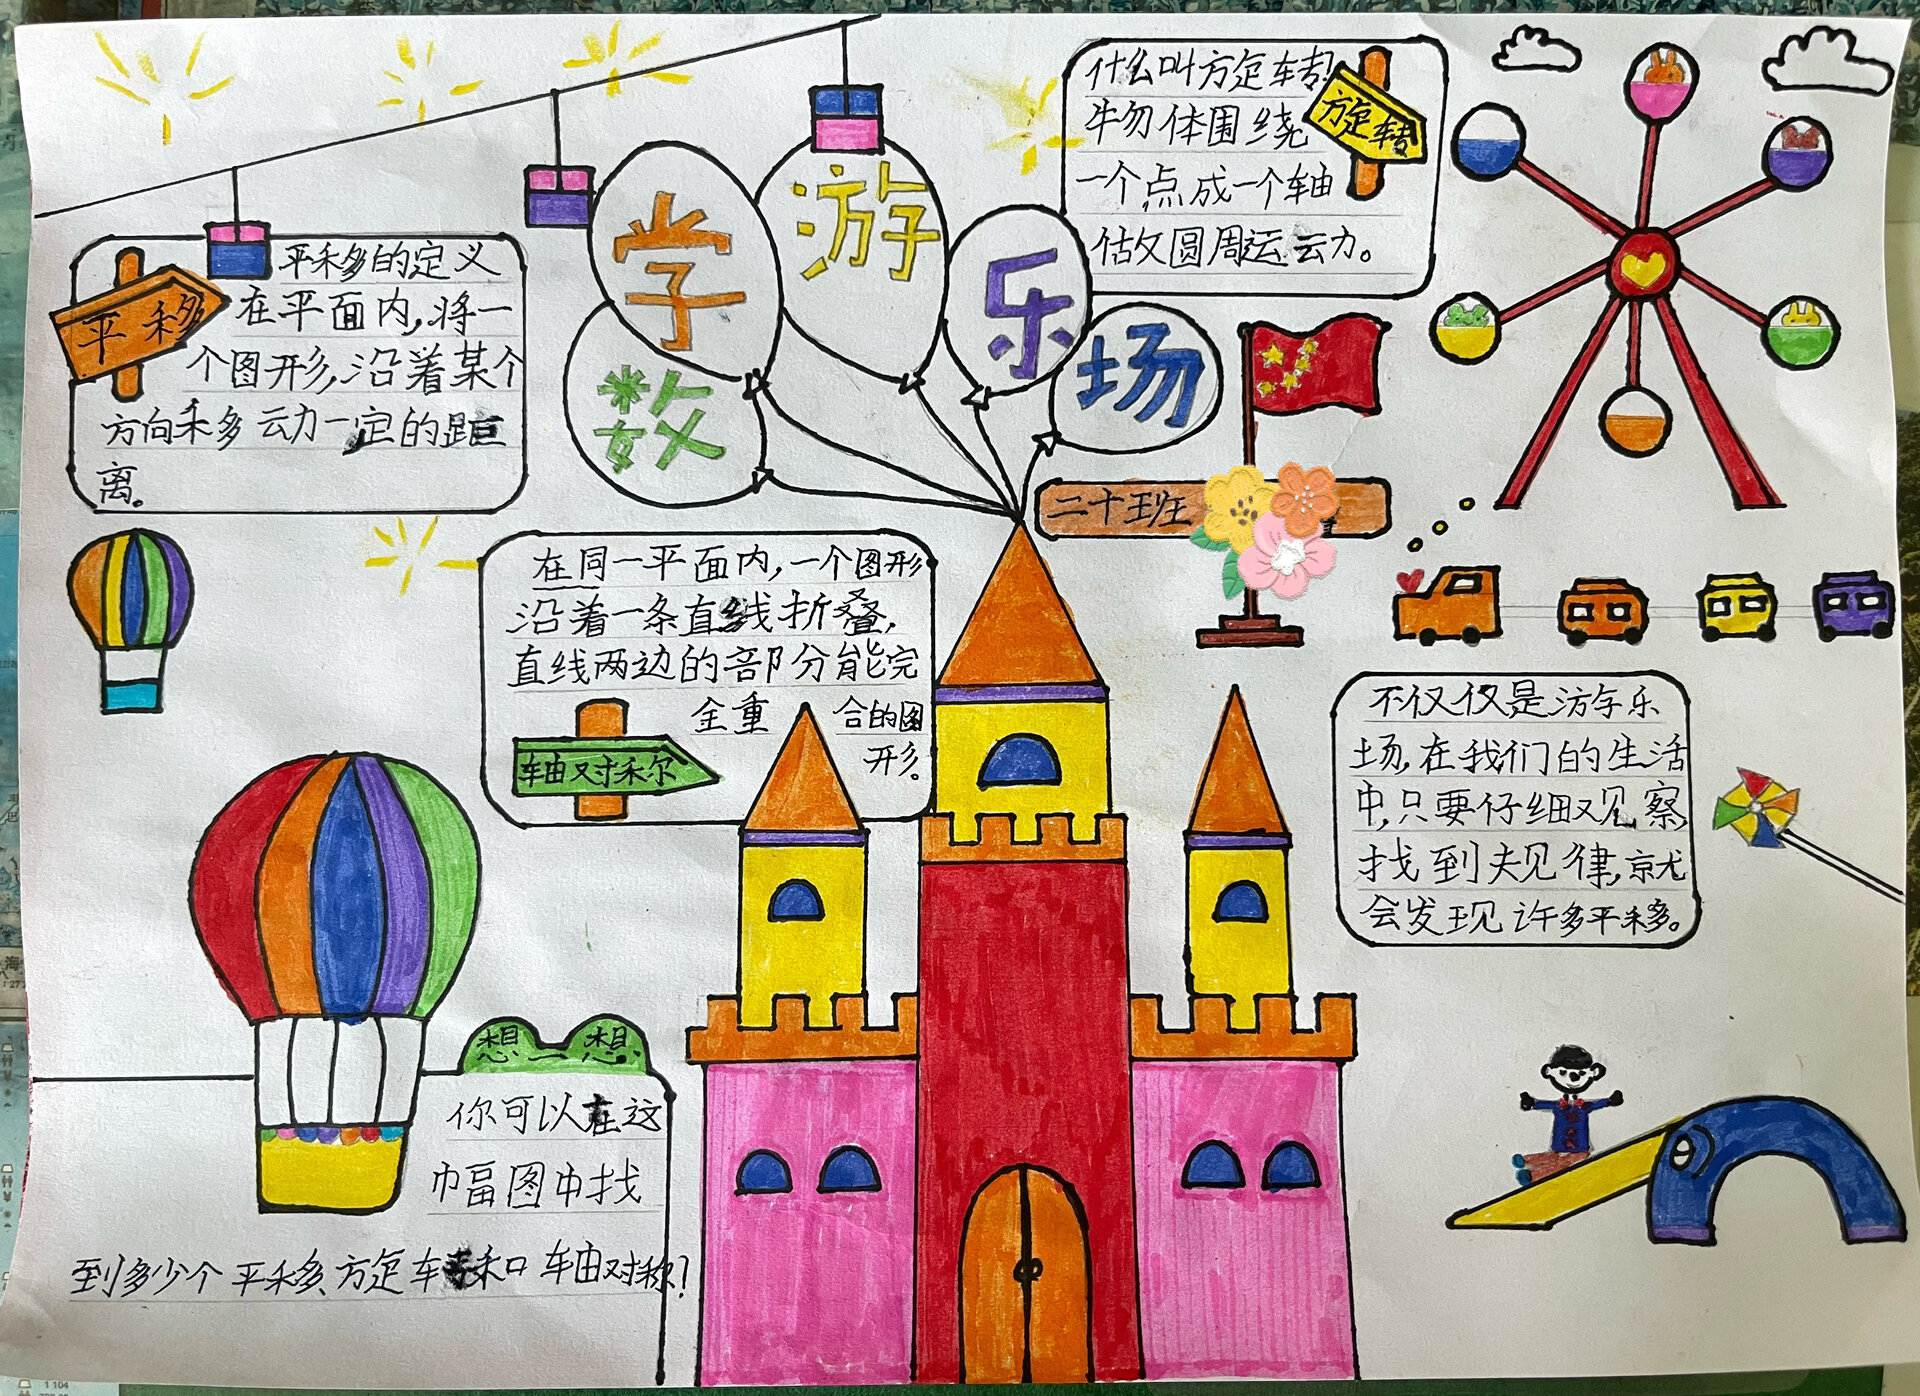 数学游乐场
平移
平移的定义
在平面内,将一
个图形,沿着某个
方向移动一定的距
离。
什么叫旋转!
物体围绕
一个点或一个轴
做圆周运动。
旋转
二十班
在同一平面内,一个图形
沿着一条直线折叠,
直线两边的部分能完
全重合的图
形。
轴对称
不仅仅是游乐
场,在我们的生活
中,只要仔细观察,
找到规律,就
会发现许多平移。
想一想
你可以在这
幅图中找
到多少个平移、旋转和轴对称?